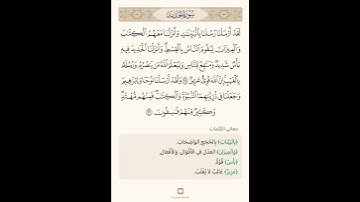 سُورَةُ الحَدِيدِ
لَقَدْ أَرْسَلْنَا رُسُلَنَا بِالْبَيِّنَاتِ وَأَنزَلْنَا مَعَهُمُ الْكِتَابَ
وَالْمِيزَانَ لِيَقُومَ النَّاسُ بِالْقِسْطِ وَأَنزَلْنَا الْحَدِيدَ فِيهِ
بَأْسٌ شَدِيدٌ وَمَنَافِعُ لِلنَّاسِ وَلِيَعْلَمَ اللَّهُ مَن يَنصُرُهُ وَرُسُلَهُ
بِالْغَيْبِ إِنَّ اللَّهَ قَوِيٌّ عَزِيزٌ ۝ وَلَقَدْ أَرْسَلْنَا نُوحًا وَإِبْرَاهِيمَ
وَجَعَلْنَا فِي ذُرِّيَّتِهِمَا النُّبُوَّةَ وَالْكِتَابَ فَمِنْهُم مُّهْتَدٍ
وَكَثِيرٌ مِّنْهُمْ فَاسِقُونَ ۝
معاني الكلمات
﴿بِالْبَيِّنَاتِ﴾ بِالْحُجَجِ الْوَاضِحَاتِ.
﴿وَالْمِيزَانَ﴾ الْعَدْلَ فِي الْأَقْوَالِ، وَالْأَفْعَالِ.
﴿بَأْسٌ﴾ قُوَّةٌ.
﴿عَزِيزٌ﴾ غَالِبٌ لَا يُغْلَبُ.